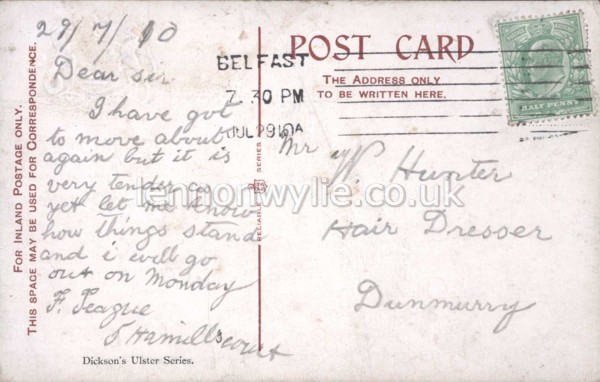 29/7/10
Dear sir
I have got
to move about
again but it is
very tender as
yet let me know
how things stand
and i will go
out on Monday
F. Teague
5 Hamills court
Dickson's Ulster Series.
FOR INLAND POSTAGE ONLY.
THIS SPACE MAY BE USED FOR CORRESPONDENCE.
RELIABLE SERIES
BELFAST
7.30 PM
JUL 29 10
POST CARD
THE ADDRESS ONLY
TO BE WRITTEN HERE.
HALFPENNY
Mr W. Hunter
Hair Dresser
Dunmurry
lennonwylie.co.uk